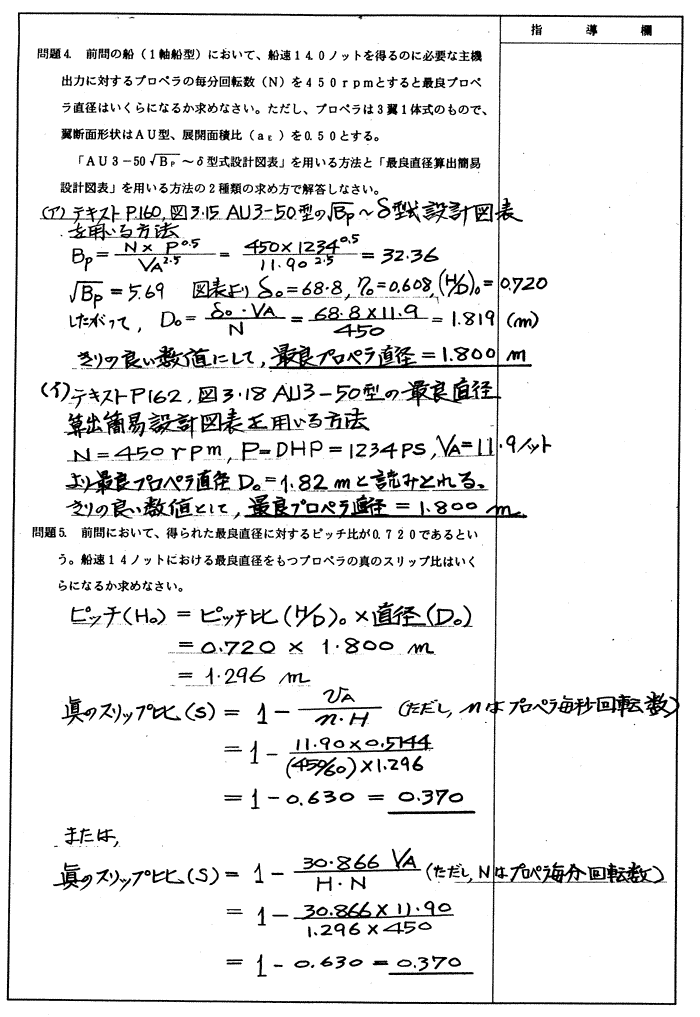 指導欄
問題4. 前問の船（1軸船型）において、船速14.0ノットを得るのに必要な主機
出力に対するプロペラの毎分回転数（N）を450rpmとすると最良プロペ
ラ直径はいくらになるか求めなさい。ただし、プロペラは3翼1体式のもので、
翼断面形状はAU型、展開面積比（aE）を0.50とする。
「AU3-50√BP～δ型式設計図表」を用いる方法と「最良直径算出簡易
設計図表」を用いる方法の2種類の求め方で解答しなさい。
(ア) テキストP.160, 図3.15 AU3-50型の√BP～δ型式設計図表
を用いる方法
BP = N×P^0.5 / VA^2.5 = 450×1234^0.5 / 11.90^2.5 = 32.36
√BP = 5.69 図表より δ0=68.8, η0=0.608, (H/D)0=0.720
したがって, D0 = δ0・VA / N = 68.8×11.9 / 450 = 1.819 (m)
きりの良い数値にして, 最良プロペラ直径=1.800 m
(イ) テキストP162, 図3.18 AU3-50型の最良直径
算出簡易設計図表を用いる方法
N=450rpm, P=DHP=1234PS, VA=11.9ノット
より最良プロペラ直径D0=1.82mと読みとれる。
きりの良い数値として, 最良プロペラ直径=1.800m
問題5. 前問において、得られた最良直径に対するピッチ比が0.720であるとい
う。船速14ノットにおける最良直径をもつプロペラの真のスリップ比はいく
らになるか求めなさい。
ピッチ(H0) = ピッチ比(H/D)0 × 直径(D0)
= 0.720 × 1.800 m
= 1.296 m
真のスリップ比(S) = 1 - VA / n・H (ただし, nはプロペラ毎秒回転数)
= 1 - 11.90×0.5144 / (450/60)×1.296
= 1-0.630 = 0.370
または,
真のスリップ比(S) = 1 - 30.866 VA / H・N (ただし, Nはプロペラ毎分回転数)
= 1 - 30.866×11.90 / 1.296×450
= 1-0.630 = 0.370